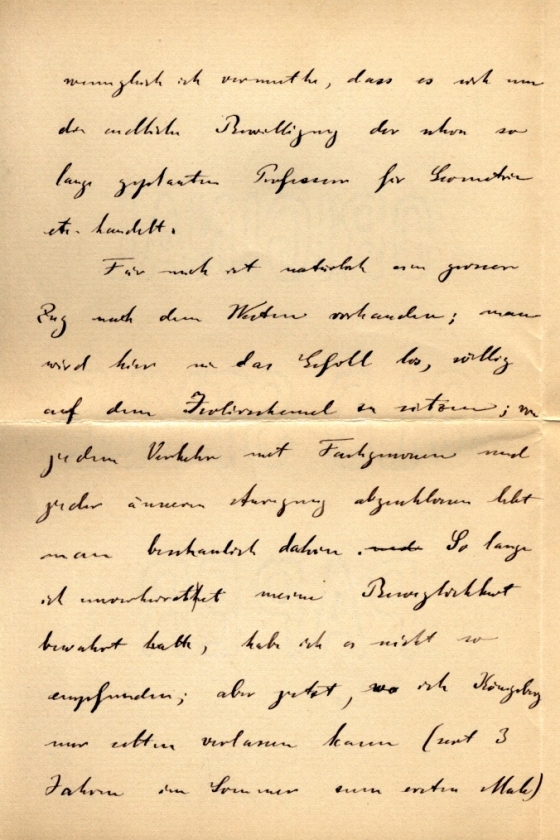 wenngleich ich vermuthe, dass es sich um
die endliche Bewilligung der schon so
lange geplanten Professur für Geometrie
etc. handelt.
Für mich ist natürlich ein grosser
Zug nach dem Westen vorhanden; man
wird hier nie das Gefühl los, völlig
auf dem Isolirschemel zu sitzen; von
jedem Verkehr mit Fachgenossen und
jeder äusseren Anregung abgeschlossen lebt
man beschaulich dahin. So lange
ich unverheirathet meine Beweglichkeit
bewahrt hatte, habe ich es nicht so
empfunden; aber jetzt, wo ich Königsberg
nur selten verlassen kann (seit 3
Jahren im Sommer zum ersten Male)